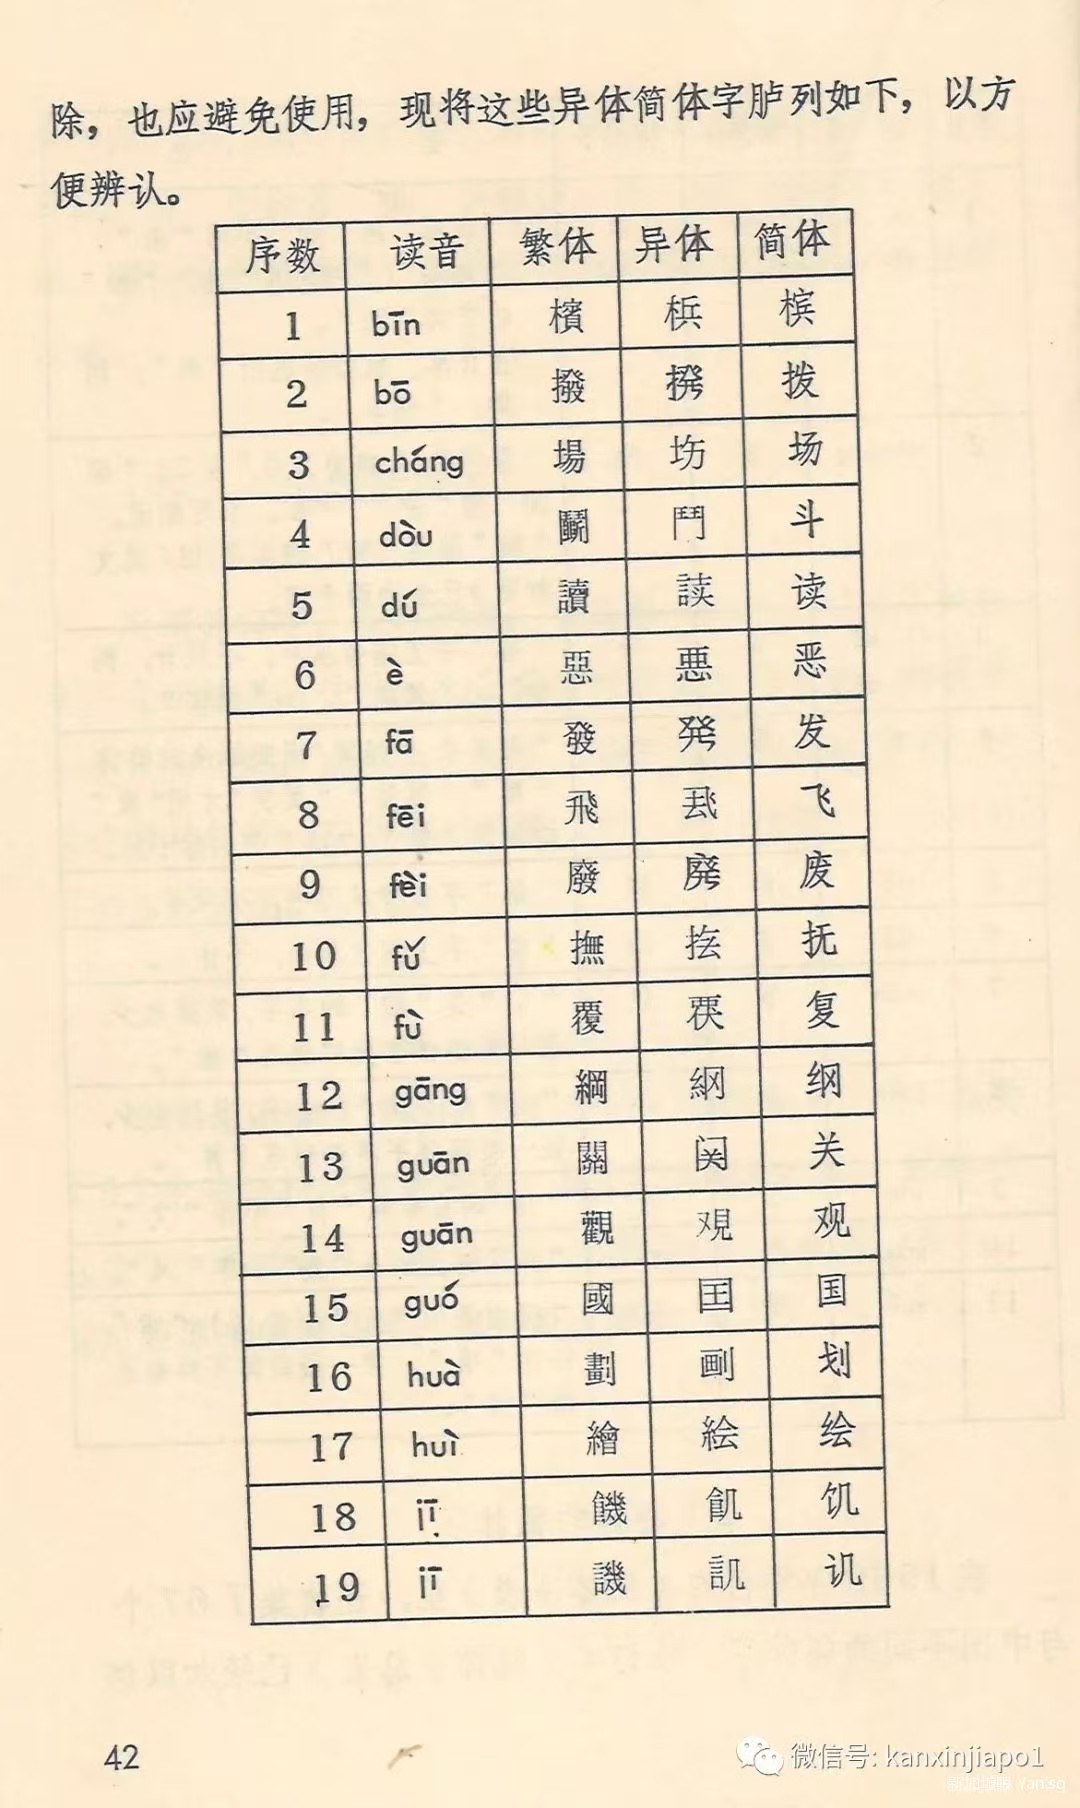 除，也应避免使用，现将这些异体简体字胪列如下，以方
便辨认。
序数 读音 繁体 异体 简体
1 bīn 檳 梹 槟
2 bō 撥 撥 拨
3 cháng 場 坊 场
4 dòu 鬭 鬥 斗
5 dú 讀 読 读
6 è 惡 悪 恶
7 fā 發 発 发
8 fēi 飛 飞
9 fèi 廢 廃 废
10 fǔ 撫 抚
11 fù 覆 复
12 gāng 綱 纲
13 guān 關 关
14 guān 觀 観 观
15 guó 國 囯 国
16 huà 劃 划
17 huì 繪 絵 绘
18 jī 饑 飢 饥
19 jī 譏 訊 讥
42
微信号: kanxinjiapo1